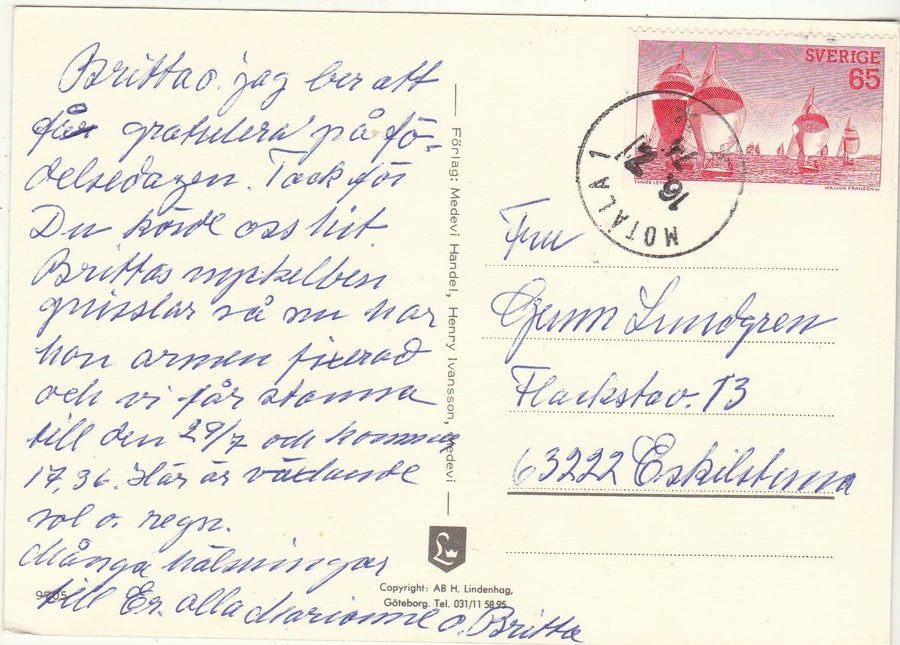 Britta o. jag ber att
får gratulera på fö-
delsedagen. Tack för
Du körde oss hit.
Brittas nyckelben
gnisslar så nu har
hon armen fixerad
och vi får stanna
till den 29/7 och kommer
17,36. Här är växlande
sol o. regn.
Många hälsningar
till Er alla Marianne o. Britta
9705
Förlag: Medevi Handel, Henry Ivansson, Medevi
L
Copyright: AB H. Lindenhag,
Göteborg. Tel. 031/11 58 95
SVERIGE
65
MAJVOR FRANZÉN SC
MOTALA 1
16
74
Fru
Gunn Lundgren
Flackstav. 13
63222 Eskilstuna